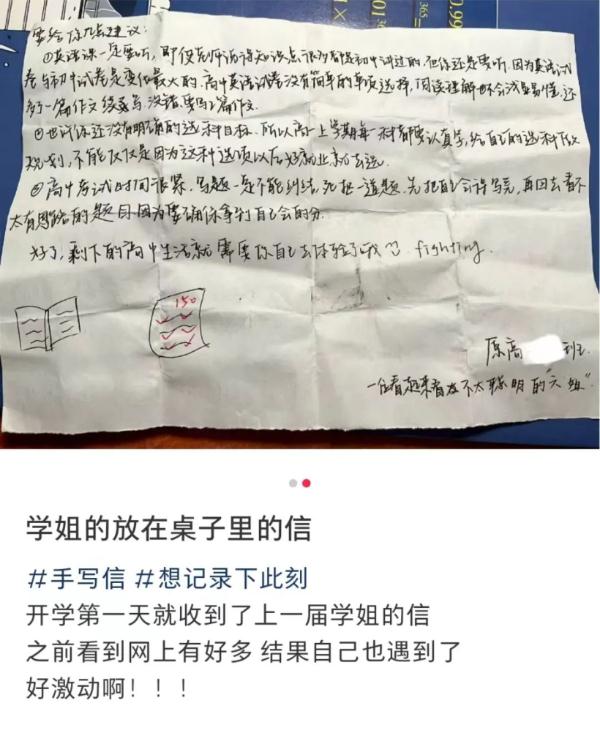 要给你几点建议：
①英语课一定要听，即使老师讲得知识点很多都是初中讲过的，但你还是要听，因为英语试
卷与初中试卷是变化最大的，高中英语试卷没有简单的单项选择，阅读理解也不会浅显易懂，还
多了一篇作文续写，没错，要写2篇作文．
②也许你还没有明确的选科目标，所以高一上学期每一科都要认真学，给自己的选科做
规划，不能仅仅是因为这种选项以后好就业就去选．
③高中考试时间很紧，写题一定不能纠结，死抠一道题，先把自己会得写完，再回去看不
太有思路的题目，因为要确保你拿到自己会的分．
好了，剩下的高中生活就需要你自己去体验了哦 fighting．
150
原高 班
一位看起来者不太聪明的“大姐”
0.99
365
1.01
365
学姐的放在桌子里的信
#手写信 #想记录下此刻
开学第一天就收到了上一届学姐的信
之前看到网上有好多 结果自己也遇到了
好激动啊！！！